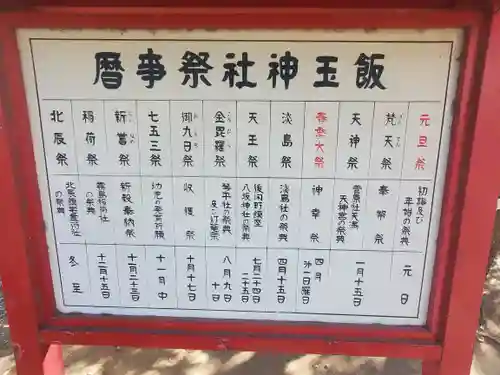 飯玉神社祭事暦
元旦祭
初詣及び
平穏の祭典
元日
梵天祭
ぼんてん
奉幣祭
天神祭
菅原社天満
天神宮の祭典
一月十五日
春季大祭
神幸祭
四月
第一日曜日
淡島祭
淡島社の祭典
四月十五日
天王祭
後閑町鎮座
八坂神社の祭典
七月二十四日
二十五日
金毘羅祭
琴平社の祭典
及び灯篭祭
八月九日
十日
御九日祭
収穫祭
十月十七日
七五三祭
十一月中
新嘗祭
新穀奉納祭
十一月二十三日
稲荷祭
霧島稲荷社
の祭典
十二月十五日
北辰祭
の祭典
冬至